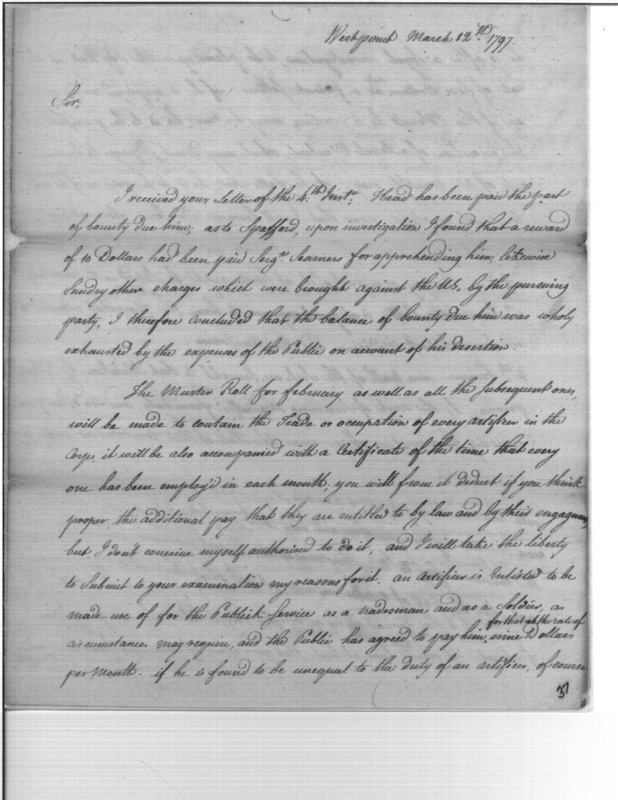 Westpoint March 12th. 1797.
Sir,
I received your Letter of the 4th. Inst. Head has been paid the part
of bounty due him; as to Spafford, upon investigation I found that a reward
of 10 Dollars had been paid Sergt. Seamers for apprehending him, likewise
Sundry other charges which were brought against the US. by the pursuing
party, I therefore concluded that the balance of bounty due him was wholy
exhausted by the expenses of the Public on account of his desertion.
The Muster Roll for February as well as all the subsequent ones,
will be made to contain the Trade or occupation of every artificer in the
Corps, it will be also accompanied with a Certificate of the time that every
one has been employ'd in each month. you will from it deduct if you think
proper, the additional pay that they are entitled to by law and by their engagement,
but I don't conceive myself authorised to do it, and I will take the liberty
to Submit to your examination my reasons for it. an artificer is Enlisted to be
made use of for the Publick Service as a tradesman and as a Soldier, as
for that at the rate of
circumstances may require, and the Public has agreed to pay him, nine Dollars
per Month. if he is found to be unequal to the duty of an artificer, of course
37